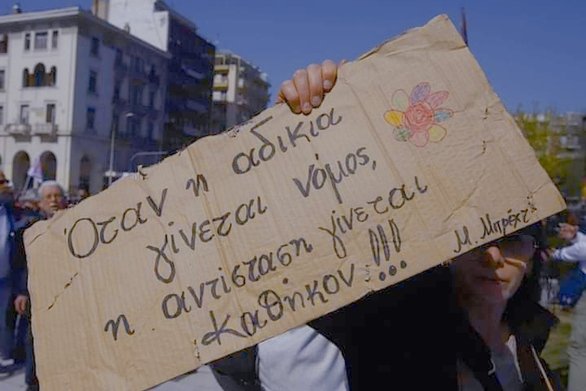 Όταν η αδικία
γίνεται νόμος,
η αντίσταση γίνεται
καθήκον!!!...
Μ. Μπρέχτ